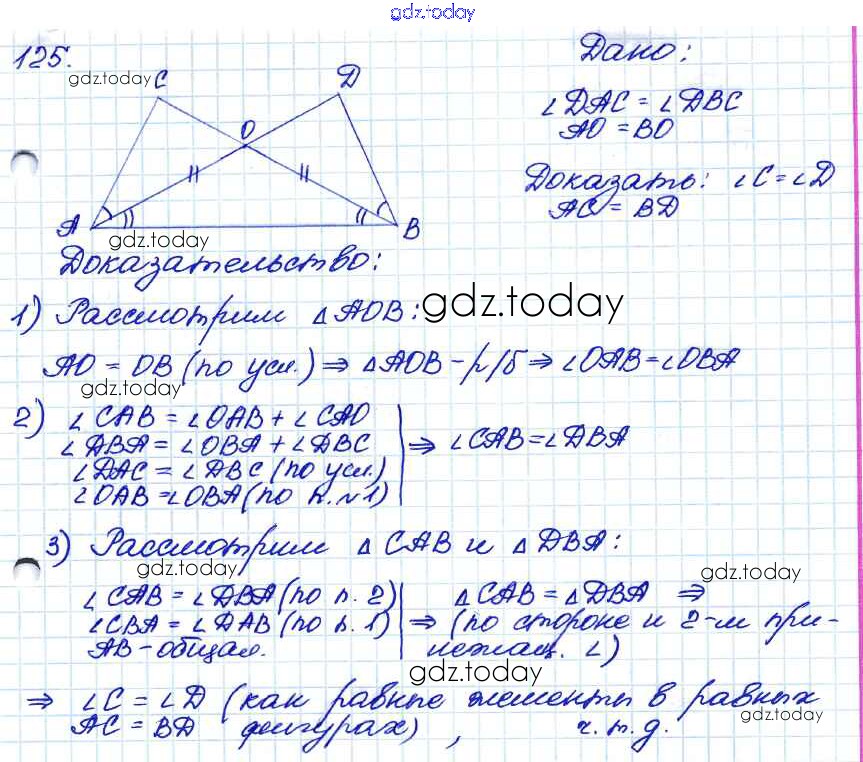 gdz.today
125.
gdz.today
C
D
O
A
B
gdz.today
Дано:
∠DAC = ∠DBC
AO = BO
Доказать: ∠C = ∠D
AC = BD
Доказательство:
1) Рассмотрим △AOB: gdz.today
AO = OB (по усл.) ⇒ △AOB – р/б ⇒ ∠OAB = ∠OBA
gdz.today
2) ∠CAB = ∠OAB + ∠CAO
∠DBA = ∠OBA + ∠DBC ⇒ ∠CAB = ∠DBA
∠DAC = ∠DBC (по усл.)
∠OAB = ∠OBA (по п. №1)
3) Рассмотрим △CAB и △DBA:
gdz.today
gdz.today
∠CAB = ∠DBA (по п. 2) △CAB = △DBA ⇒
∠CBA = ∠DAB (по п. 1) ⇒ (по стороне и 2-м при-
AB – общая. лежащ. ∠)
gdz.today
⇒ ∠C = ∠D (как равные элементы в равных
AC = BD фигурах), ч.т.д.
gdz.today